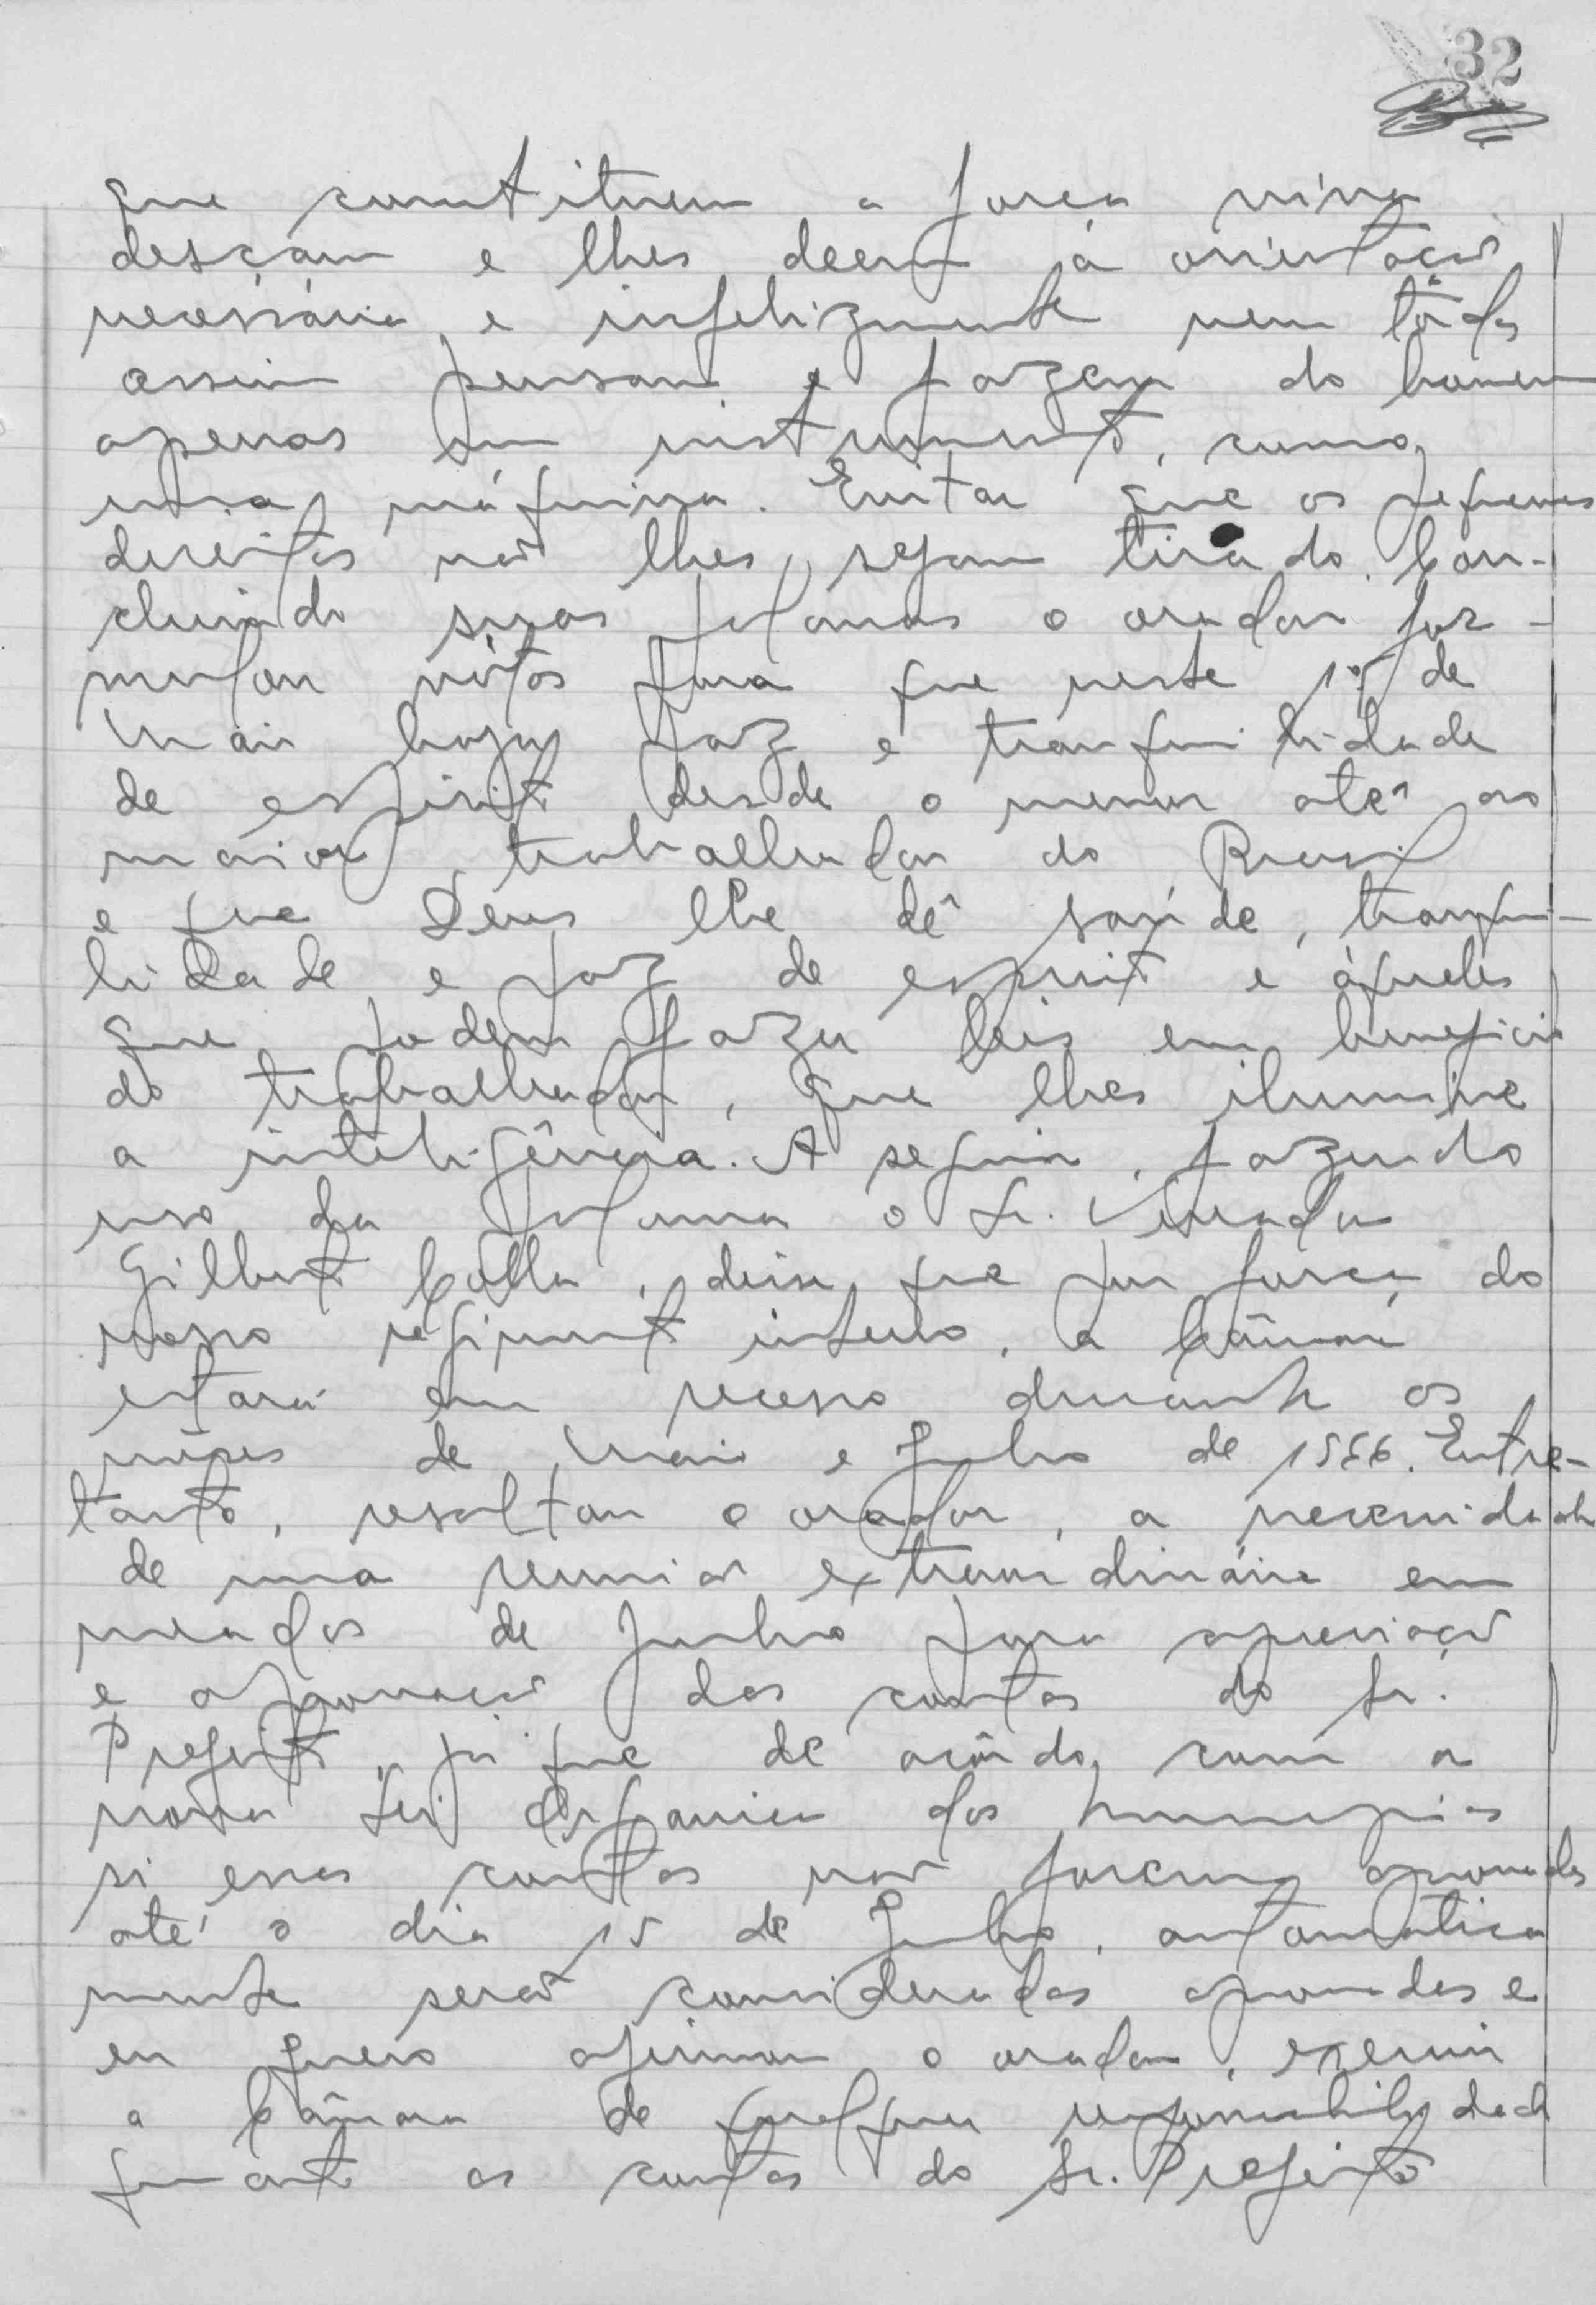 32
que constituem a força viva
desçam e lhes deem a orientação
necessária, e infelizmente nem todos
assim pensam e fazem do homem
apenas um instrumento, como
uma máquina. Evitar que os pequenos
direitos não lhes sejam tirado. Con-
cluindo suas palavras o orador for-
mulou vótos para que neste 1º de
Maio haja paz e tranquilidade
de espirito desde o menor até ao
maior trabalhador do Brasil
e que Deus lhe dê saúde, tranqui-
lidade e paz de espirito e áqueles
que podem fazer leis em beneficio
do trabalhador, que lhes ilumine
a inteligência. A seguir, fazendo
uso da palavra o Sr. Vereador
Gilberto disse que por força do
nosso regimento interno, a Câmara
estará em recesso durante os
mêses de Maio e Junho de 1966. Entre-
tanto, resaltou o orador, a necessidade
de uma reunião extraordinária em
meados de Junho para apreciação
e aprovação das contas do Sr.
Prefeito, já que de acôrdo com a
nova Lei Orgânica dos Municipios
si essas contas não forem aprovadas
até o dia 15 de Junho, automatica
mente serão consideradas aprovadas e
eu quero afirmar o orador, eximir
a Câmara de qualquer responsabilidade
quanto as contas do Sr. Prefeito